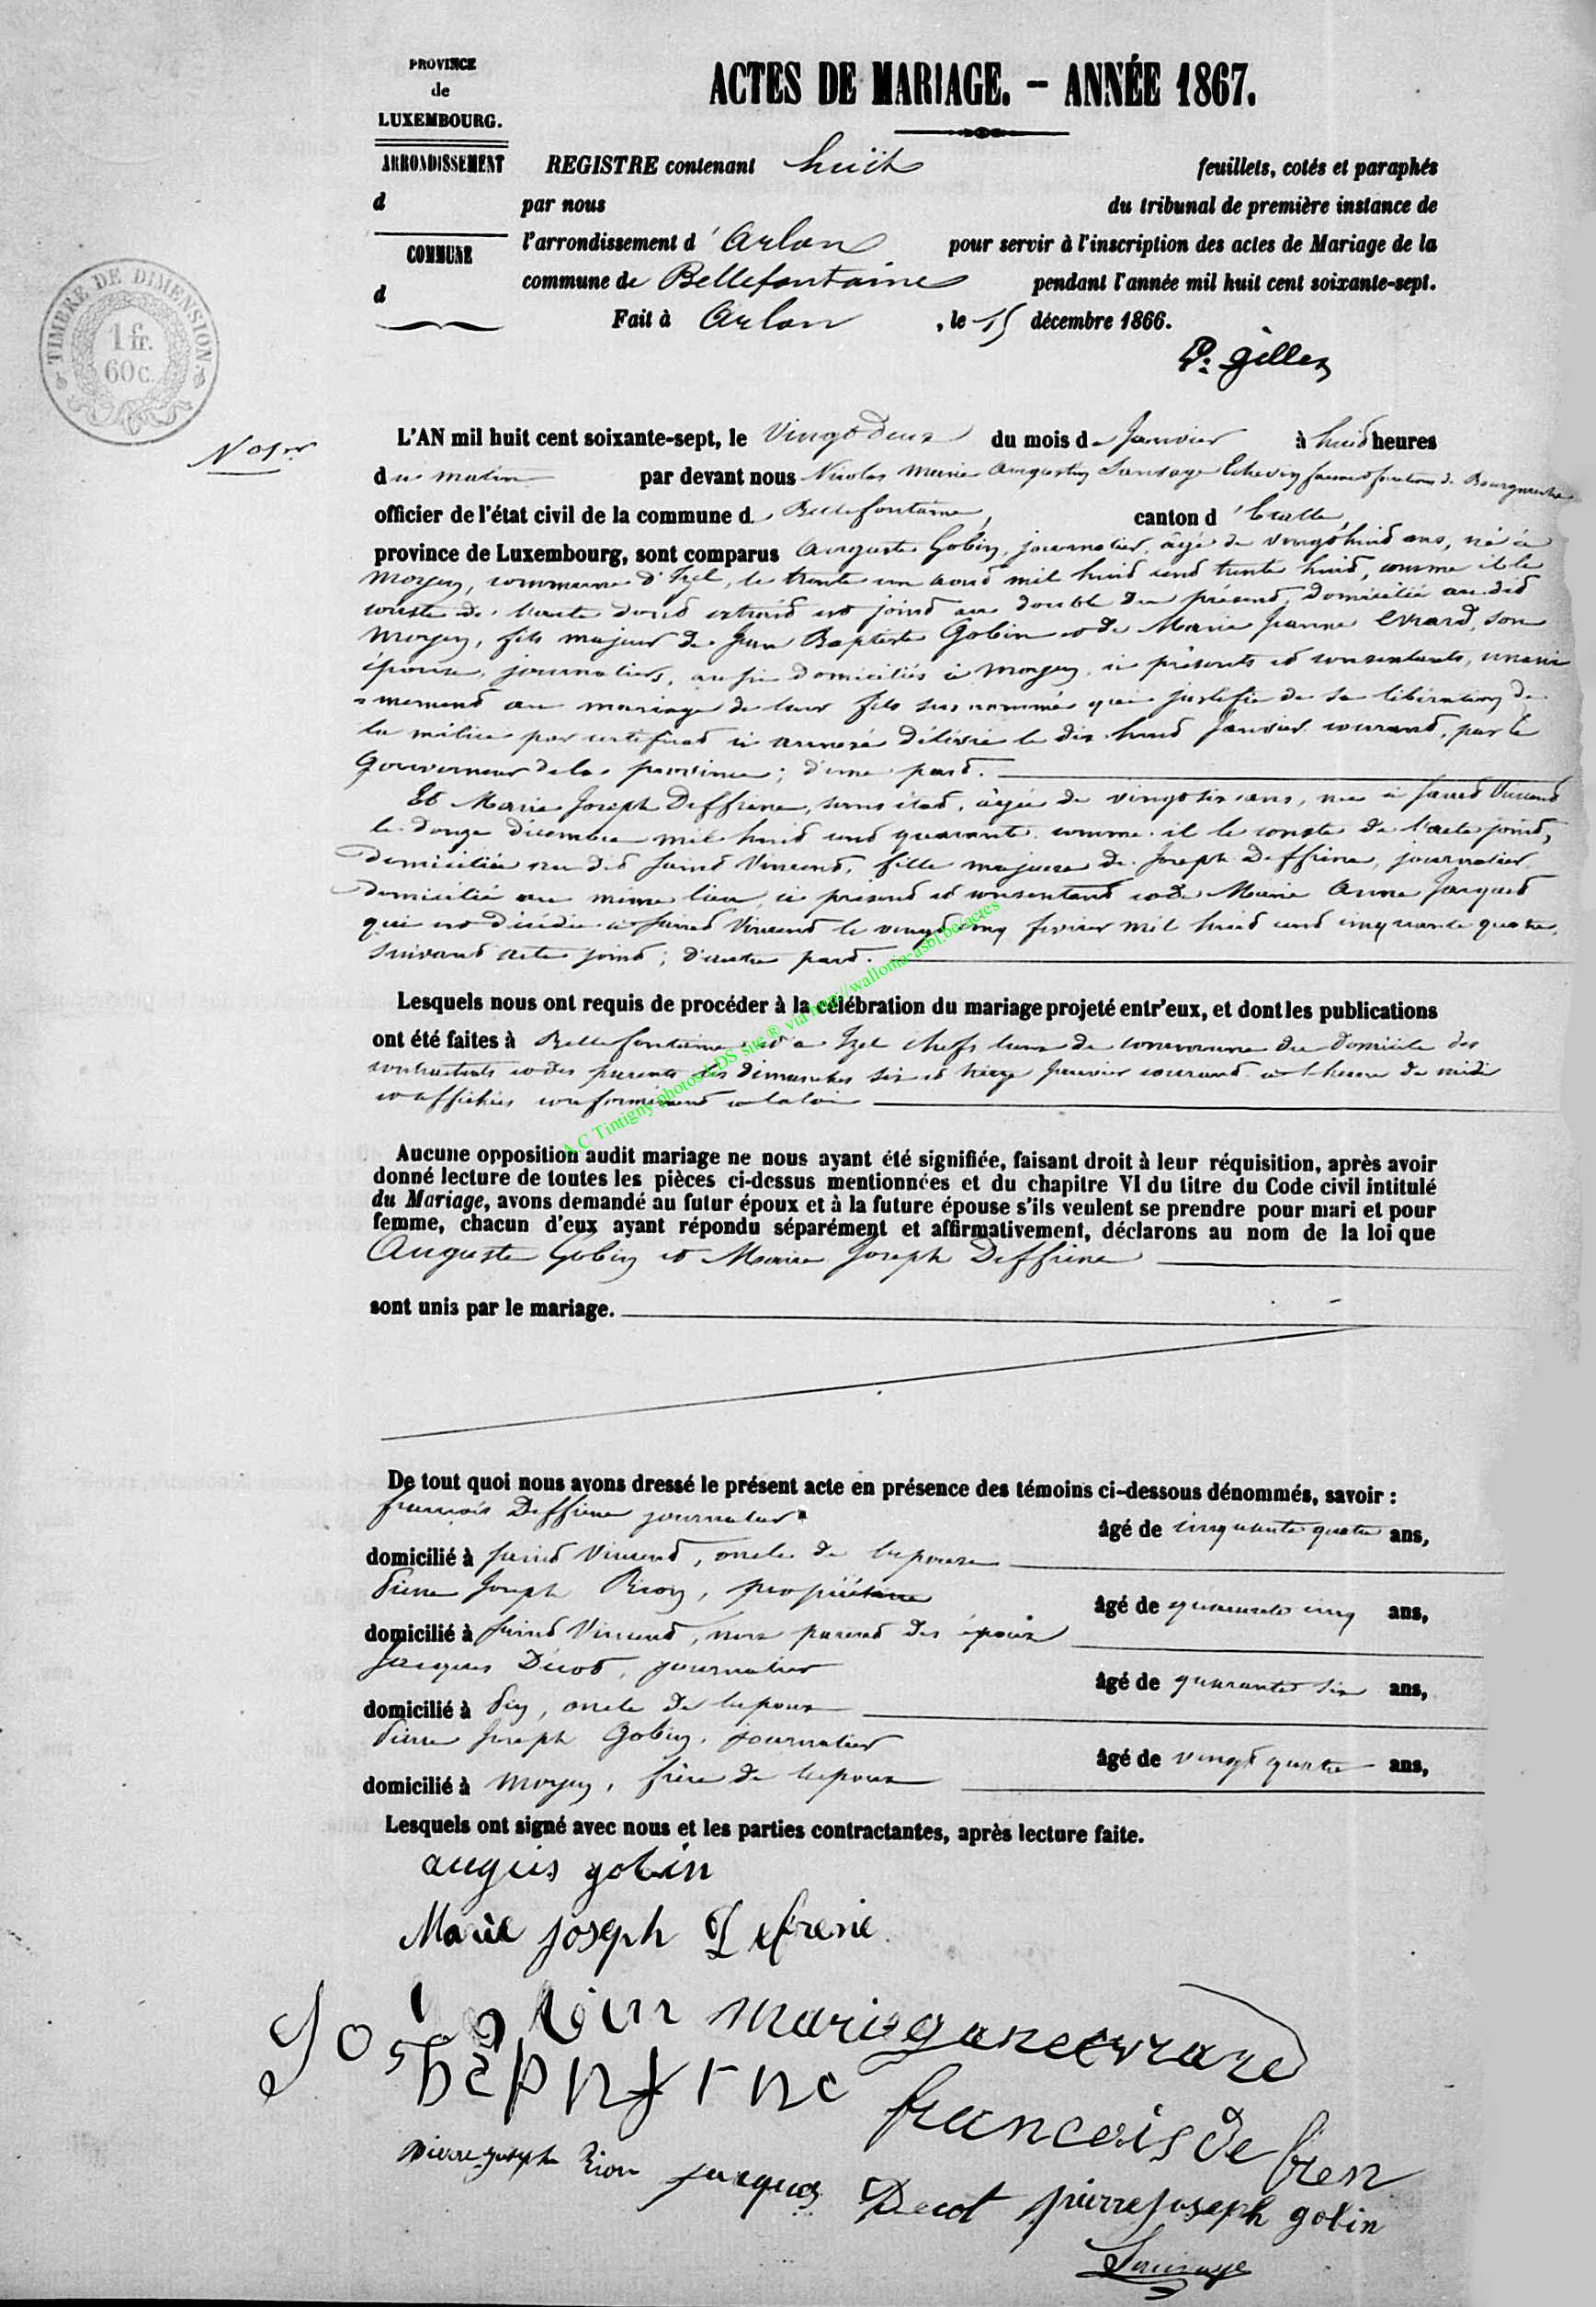 PROVINCE
de
LUXEMBOURG.
ACTES DE MARIAGE. – ANNÉE 1867.
ARRONDISSEMENT
d
COMMUNE
d
REGISTRE contenant huit feuillets, cotés et paraphés
par nous du tribunal de première instance de
l'arrondissement d'Arlon pour servir à l'inscription des actes de Mariage de la
commune de Bellefontaine pendant l'année mil huit cent soixante-sept.
Fait à Arlon, le 15 décembre 1866.
P. Gilles
TIMBRE DE DIMENSION
1 fr.
60 c.
N° 1er
L'AN mil huit cent soixante-sept, le Vingt Deux du mois de Janvier à huit heures
du matin par devant nous Nicolas Marie Augustin Sauvage Echevin faisant fonctions de Bourgmestre
officier de l'état civil de la commune de Bellefontaine, canton d'Etalle,
province de Luxembourg, sont comparus Auguste Gobin, journalier, âgé de vingt huit ans, né à
Moyen, commune d'Izel, le trente un aout mil huit cent trente huit, comme il le
conste de l'acte dont extrait est joint au double du présent, domicilié au dit
Moyen, fils majeur de Jean Baptiste Gobin et de Marie Jeanne Evrard, son
épouse, journaliers, aussi domiciliés à Moyen, ici présents et consentants, unani
=mement au mariage de leur fils sus nommé qui justifie de sa libération de
la milice par certificat ci annexé délivré le dix huit Janvier courant, par le
Gouverneur de la province; d'une part.
Et Marie Joseph Deffrene, sans état, âgée de vingt six ans, née à Saint Vincent
le douze décembre mil huit cent quarante comme il le conste de l'acte joint,
domiciliée au dit Saint Vincent, fille majeure de Joseph Deffrene, journalier
domicilié au même lieu, ici présent et consentant et de Marie Anne Jacques
qui est décédée à Saint Vincent le vingt cinq fevrier mil huit cent cinquante quatre,
suivant acte joint; d'autre part.
Lesquels nous ont requis de procéder à la célébration du mariage projeté entr'eux, et dont les publications
ont été faites à Bellefontaine et à Izel chefs lieux de commune du domicile des
contractants et des parents les dimanches six et treize Janvier courant à l'heure de midi
et affichées conformément à la loi
A.C Tintigny photos LDS site ® via http://walloma-asbl.be/actes
Aucune opposition audit mariage ne nous ayant été signifiée, faisant droit à leur réquisition, après avoir
donné lecture de toutes les pièces ci-dessus mentionnées et du chapitre VI du titre du Code civil intitulé
du Mariage, avons demandé au futur époux et à la future épouse s'ils veulent se prendre pour mari et pour
femme, chacun d'eux ayant répondu séparément et affirmativement, déclarons au nom de la loi que
Auguste Gobin et Marie Joseph Deffrene
sont unis par le mariage.
De tout quoi nous avons dressé le présent acte en présence des témoins ci-dessous dénommés, savoir :
françois Deffrene journalier âgé de cinquante quatre ans,
domicilié à Saint Vincent, oncle de l'epouse
Pierre Joseph Rion, propriétaire âgé de quarante cinq ans,
domicilié à Saint Vincent, non parent des époux
Jacques Décot, journalier âgé de quarante six ans,
domicilié à Pin, oncle de l'epoux
Pierre Joseph Gobin, journalier âgé de vingt quatre ans,
domicilié à Moyen, frère de l'epoux
Lesquels ont signé avec nous et les parties contractantes, après lecture faite.
augus gobin
Marie joseph Defrene
marie gane evrard
francois de fren
Pierre joseph Rion jacques Decot pierre joseph gobin
Sauvage